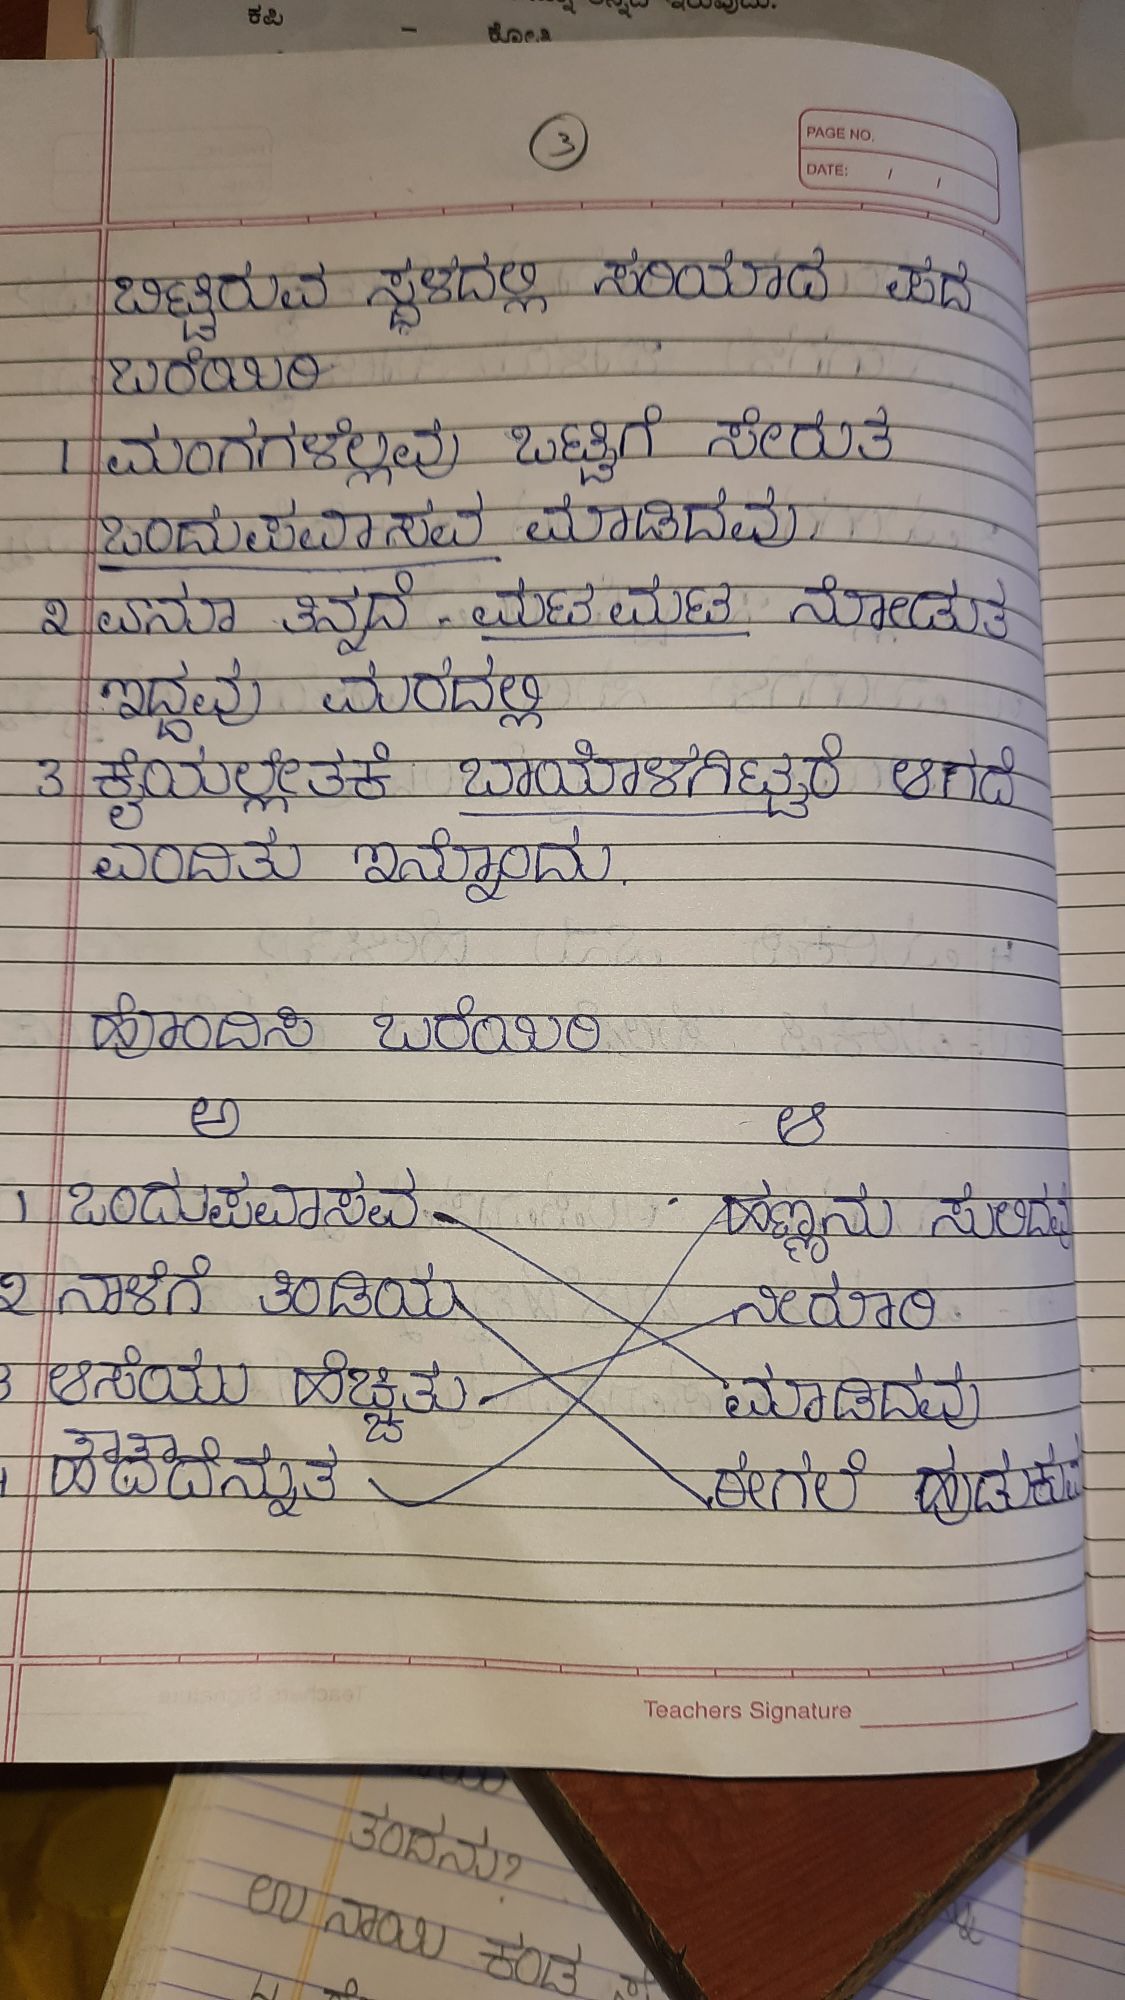 ಕಪಿ - ಕೋತಿ
3
PAGE NO.
DATE: / /
ಬಿಟ್ಟಿರುವ ಸ್ಥಳದಲ್ಲಿ ಸರಿಯಾದ ಪದ
ಬರೆಯಿರಿ
1 ಮಂಗಗಳೆಲ್ಲವು ಒಟ್ಟಿಗೆ ಸೇರುತ
ಒಂದುಪವಾಸವ ಮಾಡಿದವು.
೨ ಏನೂ ತಿನ್ನದೆ - ಮಟಮಟ ನೋಡುತ
ಇದ್ದವು ಮರದಲ್ಲಿ
3 ಕೈಯಲ್ಲೇತಕೆ ಬಾಯೊಳಗಿಟ್ಟರೆ ಆಗದೆ
ಎಂದಿತು ಇನ್ನೊಂದು.
ಹೊಂದಿಸಿ ಬರೆಯಿರಿ
ಅ ಆ
1 ಒಂದುಪವಾಸವ ಹಣ್ಣನು ಸುಲಿದವು
೨ ನಾಳೆಗೆ ತಿಂಡಿಯ ನೀರೂರಿ
3 ಆಸೆಯು ಹೆಚ್ಚಿತು ಮಾಡಿದವು
4 ಹಾಹಾದೆನ್ನುತ ಈಗಲೆ ಹುಡುಕುವ
Teachers Signature
ತಂದನು?
ಉ ನಾಯಿ ಕಂಡ